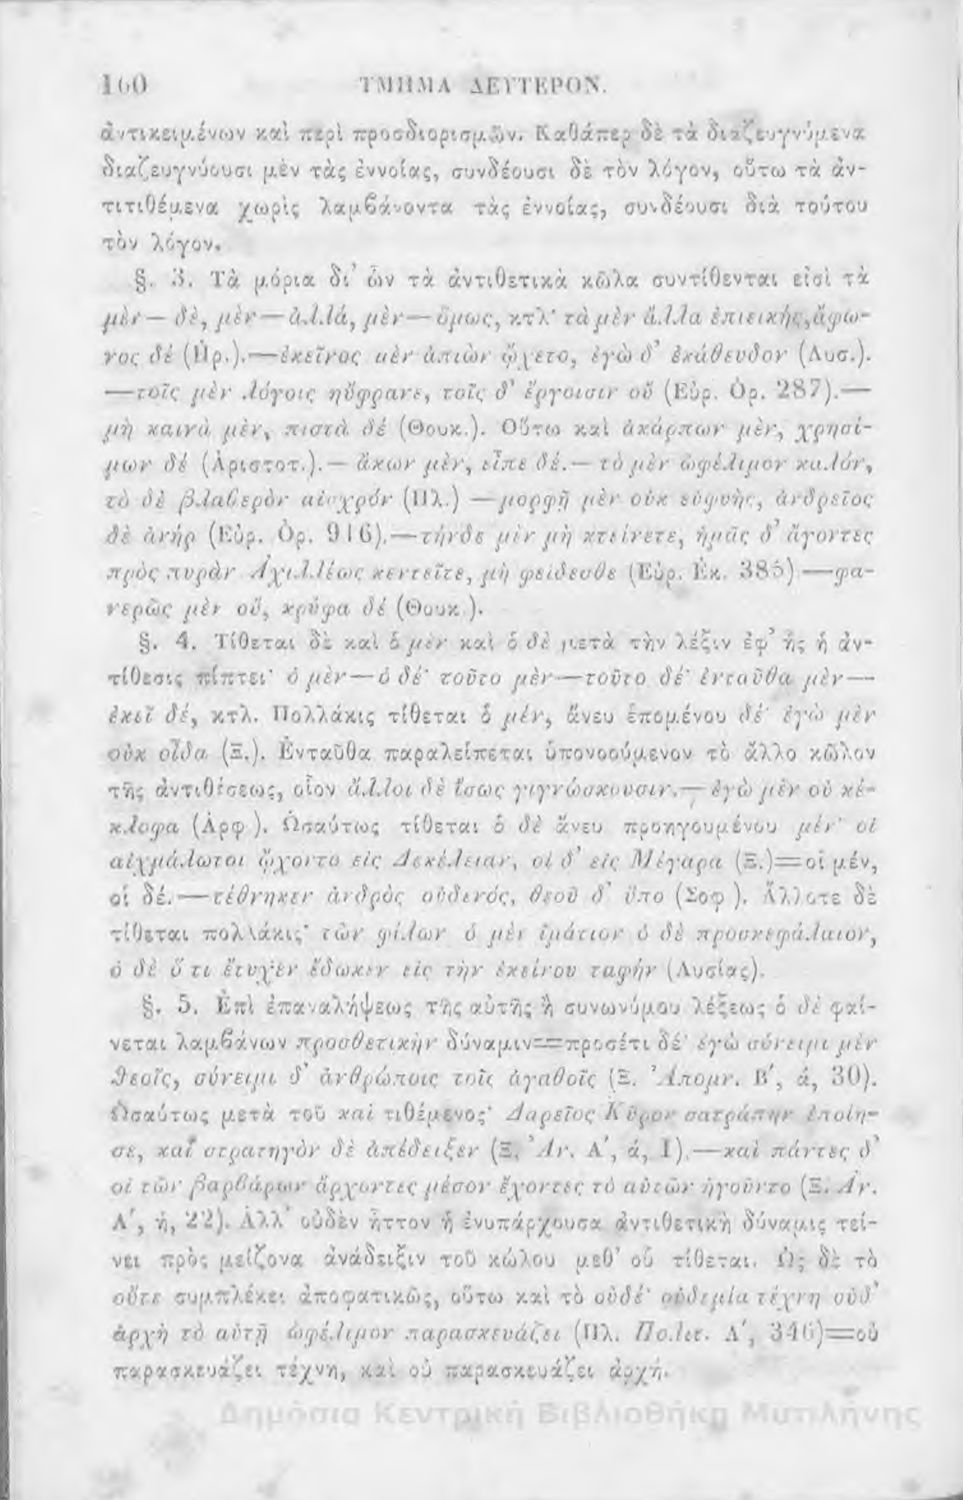 160 ΤΜΗΜΑ ΔΕΥΤΕΡΟΝ.
ἀντικειμένων καὶ περὶ προσδιορισμῶν. Καθάπερ δὲ τὰ διαζευγνύμενα
διαζευγνύουσι μὲν τὰς ἐννοίας, συνδέουσι δὲ τὸν λόγον, οὕτω τὰ ἀν-
τιτιθέμενα χωρὶς λαμβάνοντα τὰς ἐννοίας, συνδέουσι διὰ τούτου
τὸν λόγον.
§. 3. Τὰ μόρια δι᾿ ὧν τὰ ἀντιθετικὰ κῶλα συντίθενται εἰσὶ τὰ
μὲν — δὲ, μὲν — ἀλλά, μὲν — ὅμως, κτλ· τὰ μὲν ἄλλα ἐπιεικής, ἄφω-
νος δέ (Ἡρ.). — ἐκεῖνος μὲν ἀπιὼν ᾤχετο, ἐγὼ δ᾿ ἐκάθευδον (Λυσ.).
— τοῖς μὲν λόγοις ηὔφρανε, τοῖς δ᾿ ἔργοισιν οὔ (Εὐρ. Ὀρ. 287). —
μὴ καινὰ μὲν, πιστὰ δέ (Θουκ.). Οὕτω καὶ ἀκάρπων μὲν, χρησί-
μων δέ (Ἀριστοτ.). — ἄκων μὲν, εἶπε δέ. — τὸ μὲν ὠφέλιμον καλόν,
τὸ δὲ βλαβερὸν αἰσχρόν (Πλ.) — μορφῇ μὲν οὐκ εὐφυὴς, ἀνδρεῖος
δὲ ἀνήρ (Εὐρ. Ὀρ. 916). — τήνδε μὲν μὴ κτείνετε, ἡμᾶς δ᾿ ἄγοντες
πρὸς πυρὰν Ἀχιλλέως κεντεῖτε, μὴ φείδεσθε (Εὐρ. Ἑκ. 385) — φα-
νερῶς μὲν οὔ, κρύφα δέ (Θουκ.).
§. 4. Τίθεται δὲ καὶ ὁ μὲν καὶ ὁ δὲ μετὰ τὴν λέξιν ἐφ᾿ ἧς ἡ ἀν-
τίθεσις πίπτει· ὁ μὲν — ὁ δέ· τοῦτο μὲν — τοῦτο δέ· ἐνταῦθα μὲν —
ἐκεῖ δέ, κτλ. Πολλάκις τίθεται ὁ μέν, ἄνευ ἑπομένου δέ· ἐγὼ μὲν
οὐκ οἶδα (Ξ.). Ἐνταῦθα παραλείπεται ὑπονοούμενον τὸ ἄλλο κῶλον
τῆς ἀντιθέσεως, οἷον ἄλλοι δὲ ἴσως γιγνώσκουσιν. — ἐγὼ μὲν οὐ κέ-
κλοφα (Ἀρφ.). Ὡσαύτως τίθεται ὁ δὲ ἄνευ προηγουμένου μέν· οἱ
αἰχμάλωτοι ᾤχοντο εἰς Δεκέλειαν, οἱ δ᾿ εἰς Μέγαρα (Ξ.)=οἱ μέν,
οἱ δέ. — τέθνηκεν ἀνδρὸς οὐδενός, θεοῦ δ᾿ ὕπο (Σοφ.). Ἄλλοτε δὲ
τίθεται πολλάκις· τῶν φίλων ὁ μὲν ἱμάτιον ὁ δὲ προσκεφάλαιον,
ὁ δὲ ὅ τι ἔτυχεν ἔδωκεν εἰς τὴν ἐκείνου ταφήν (Λυσίας).
§. 5. Ἐπὶ ἐπαναλήψεως τῆς αὐτῆς ἢ συνωνύμου λέξεως ὁ δὲ φαί-
νεται λαμβάνων προσθετικὴν δύναμιν=προσέτι δέ· ἐγὼ σύνειμι μὲν
θεοῖς, σύνειμι δ᾿ ἀνθρώποις τοῖς ἀγαθοῖς (Ξ. Ἀπομν. Β΄, ά, 30).
Ὡσαύτως μετὰ τοῦ καί τιθέμενος· Δαρεῖος Κῦρον σατράπην ἐποίη-
σε, καὶ στρατηγὸν δὲ ἀπέδειξεν (Ξ. Ἀν. Α΄, ά, 1). — καὶ πάντες δ᾿
οἱ τῶν βαρβάρων ἄρχοντες μέσον ἔχοντες τὸ αὑτῶν ἡγοῦντο (Ξ. Ἀν.
Α΄, ή, 22). Ἀλλ᾿ οὐδὲν ἧττον ἡ ἐνυπάρχουσα ἀντιθετικὴ δύναμις τεί-
νει πρὸς μείζονα ἀνάδειξιν τοῦ κώλου μεθ᾿ οὗ τίθεται. Ὡς δὲ τὸ
οὔτε συμπλέκει ἀποφατικῶς, οὕτω καὶ τὸ οὐδέ· οὐδεμία τέχνη οὐδ᾿
ἀρχὴ τὸ αὑτῇ ὠφέλιμον παρασκευάζει (Πλ. Πολιτ. Α΄, 346)=οὐ
παρασκευάζει τέχνη, καὶ οὐ παρασκευάζει ἀρχή.
Δημόσια Κεντρική Βιβλιοθήκη Μυτιλήνης